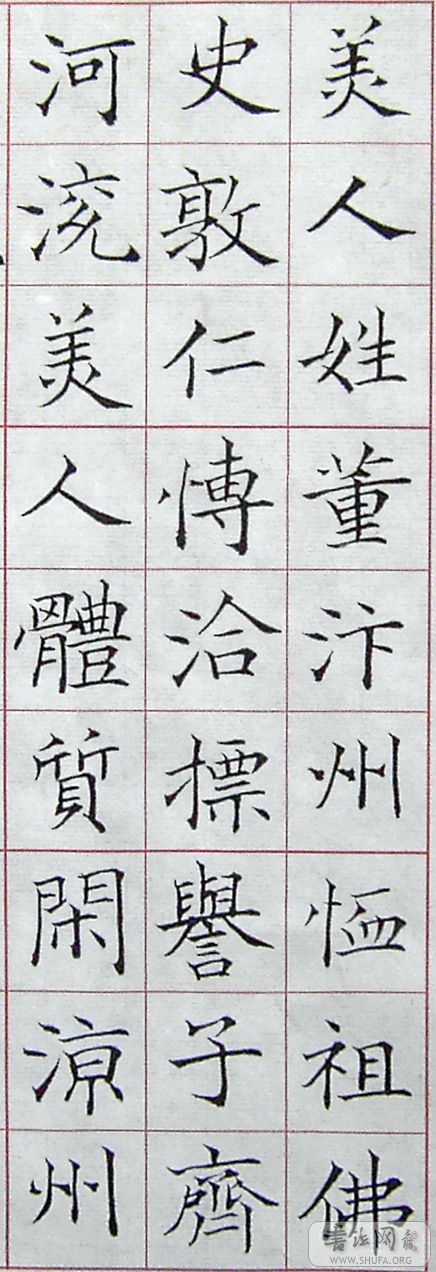 美人姓董汴州恤祖佛
史敦仁博洽標譽子齊
河流美人體質閑涼州
書法网
WWW.SHUFA.ORG